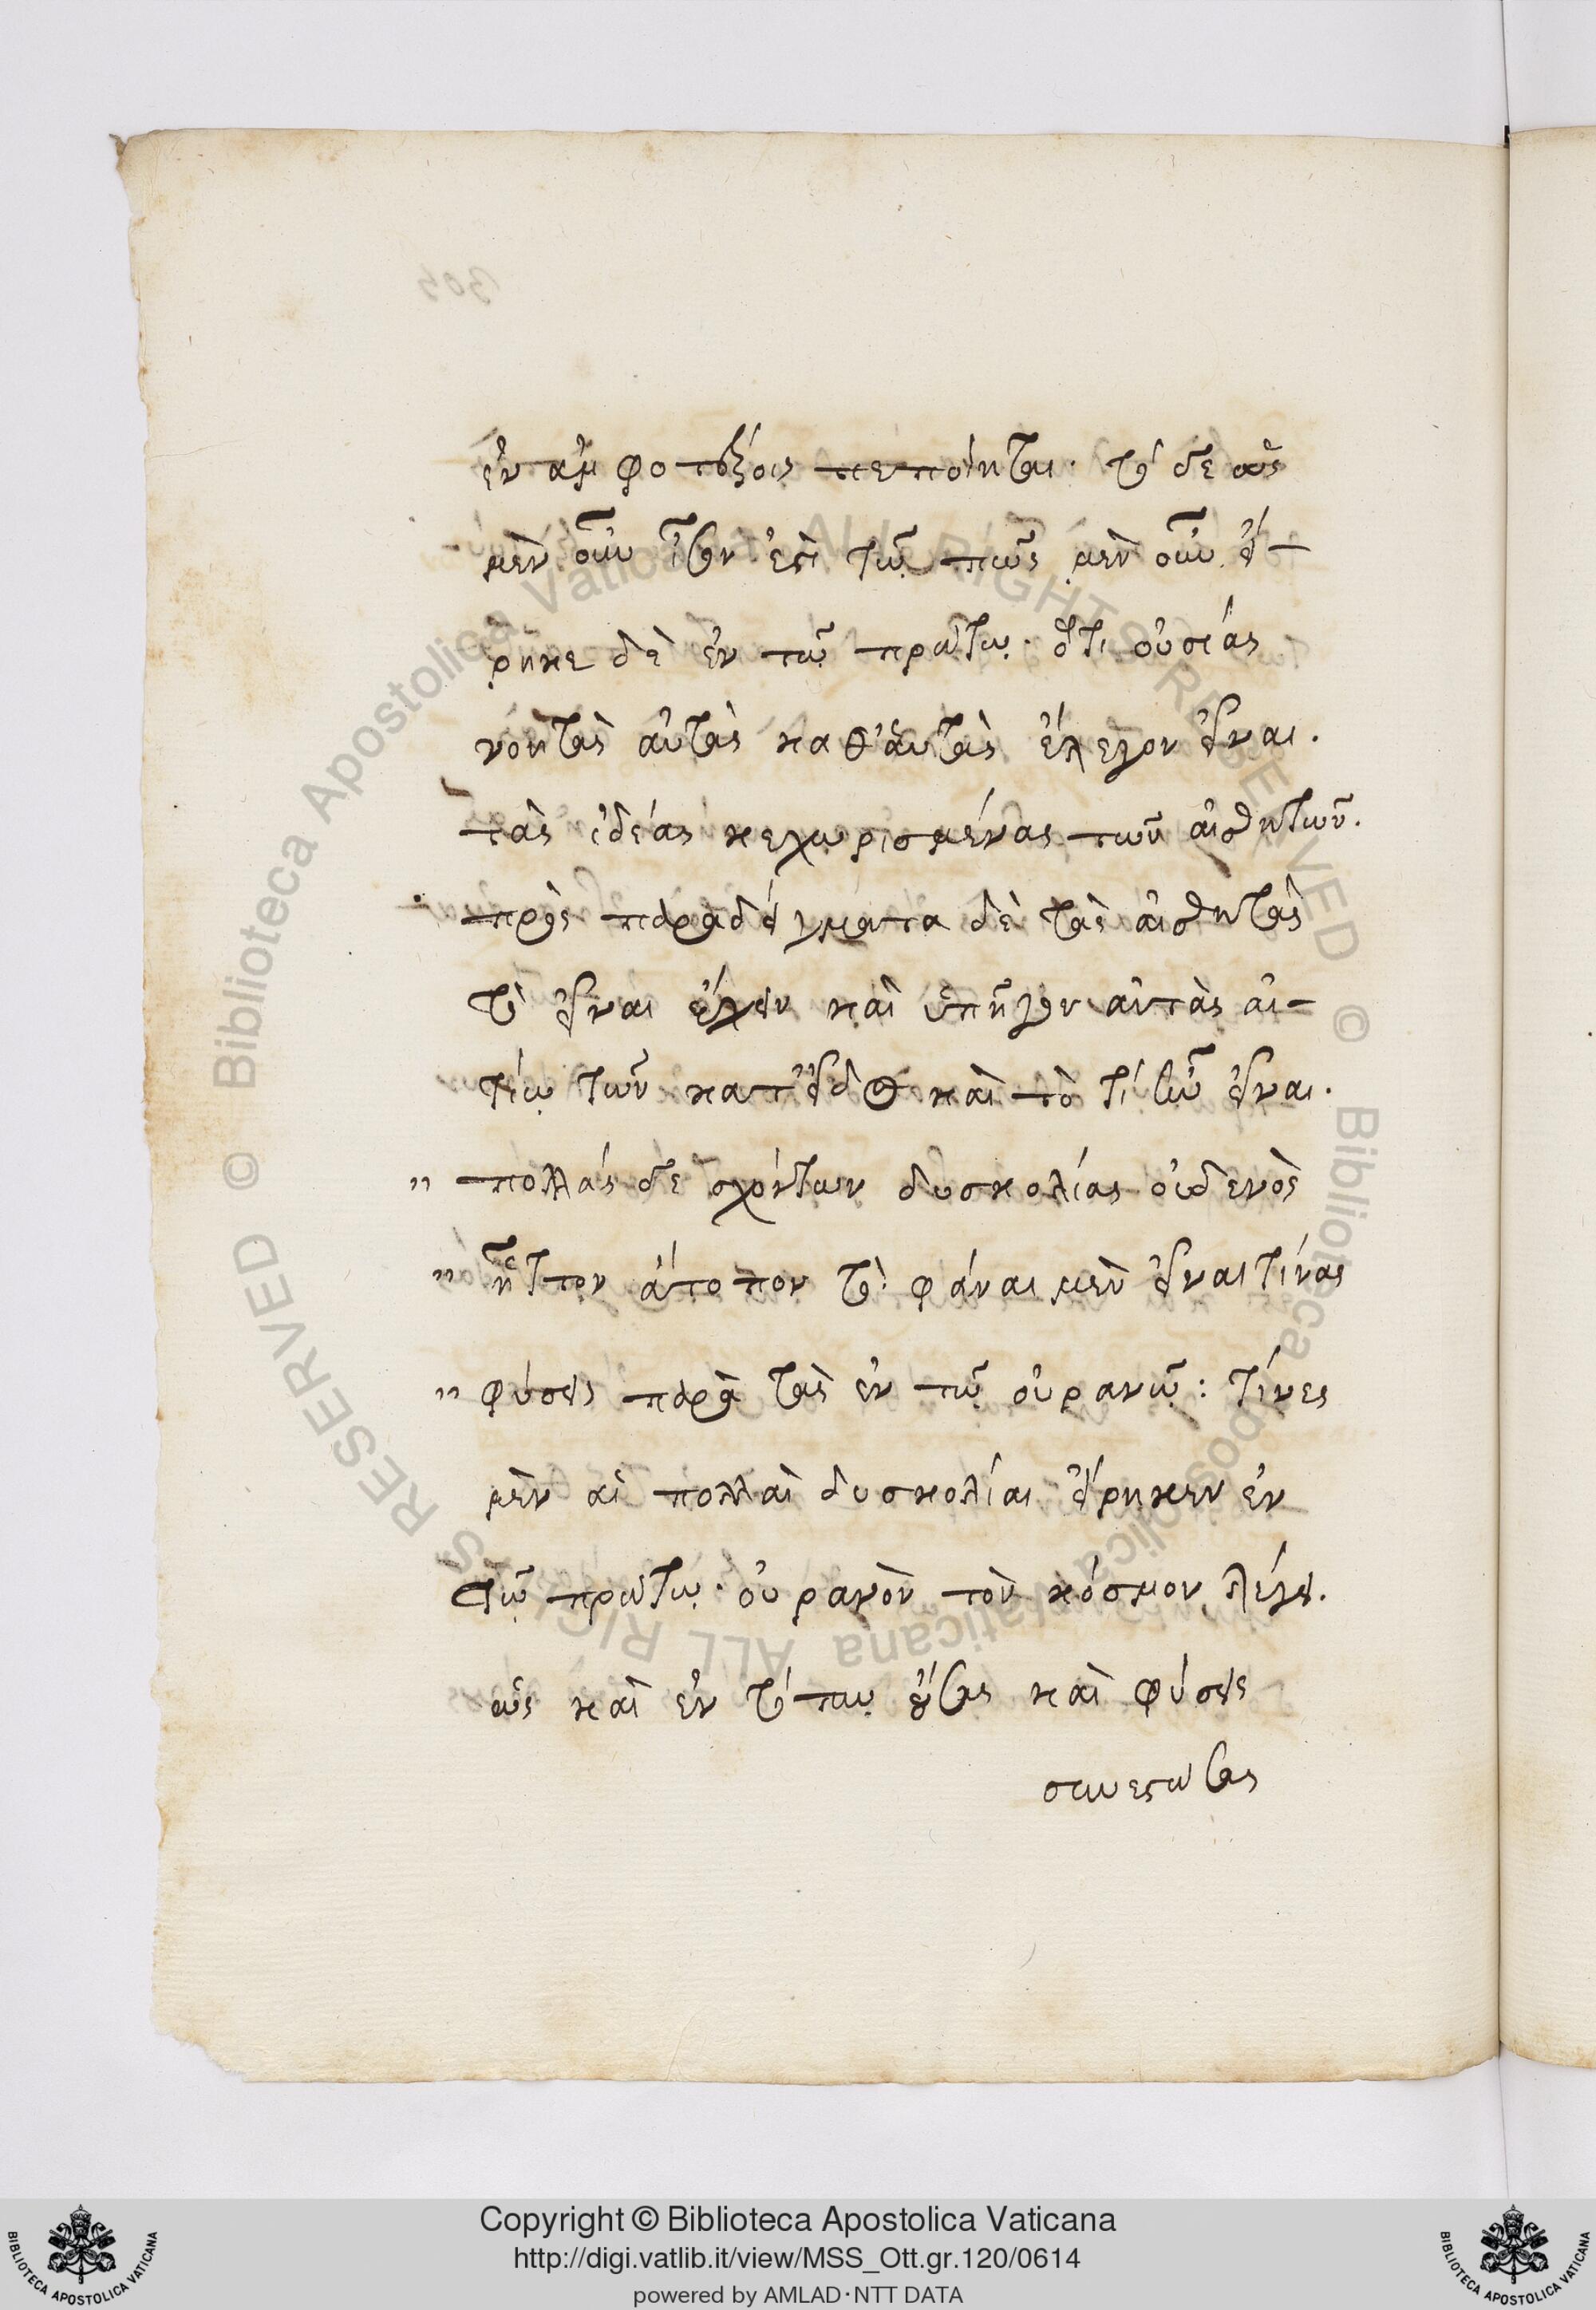 ἐν ἀμφοτέροις πεποίηται· τὸ δὲ ὡς
μὲν οὖν ἴσον ἐστὶ τῷ πῶς μὲν οὖν εἴ-
ρηκε δὲ ἐν τῷ πρώτῳ· ὅτι οὐσίας
νοητὰς αὐτὰς καθ' αὑτὰς ἔλεγον εἶναι.
τὰς ἰδέας κεχωρισμένας τῶν αἰσθητῶν.
πρὸς παραδείγματα δὲ τὰς αἰσθητὰς
τὸ εἶναι ἔχειν καὶ αὐτὰς αἰ-
τίῳ τῶν κατ' εἶδος καὶ τὸ τί ἦν εἶναι.
" πολλὰς δὲ ἐχόντων δυσκολίας οὐδενὸς
" ἧττον ἄτοπον τὸ φάναι μὲν εἶναι τίνας
" φύσεις παρὰ τὰς ἐν τῷ οὐρανῷ: τίνες
μὲν αἱ πολλαὶ δυσκολίαι εἴρηκεν ἐν
τῷ πρώτῳ· οὐρανὸν τὸν κόσμον λέγει.
ὡς καὶ ἐν τόπῳ οὔσας καὶ φύσεις
συνεστώσας
305
© Biblioteca Apostolica Vaticana ALL RIGHTS RESERVED © Biblioteca Apostolica Vaticana ALL RIGHTS RESERVED
Copyright © Biblioteca Apostolica Vaticana
http://digi.vatlib.it/view/MSS_Ott.gr.120/0614
powered by AMLAD·NTT DATA
BIBLIOTECA APOSTOLICA VATICANA
BIBLIOTECA APOSTOLICA VATICANA